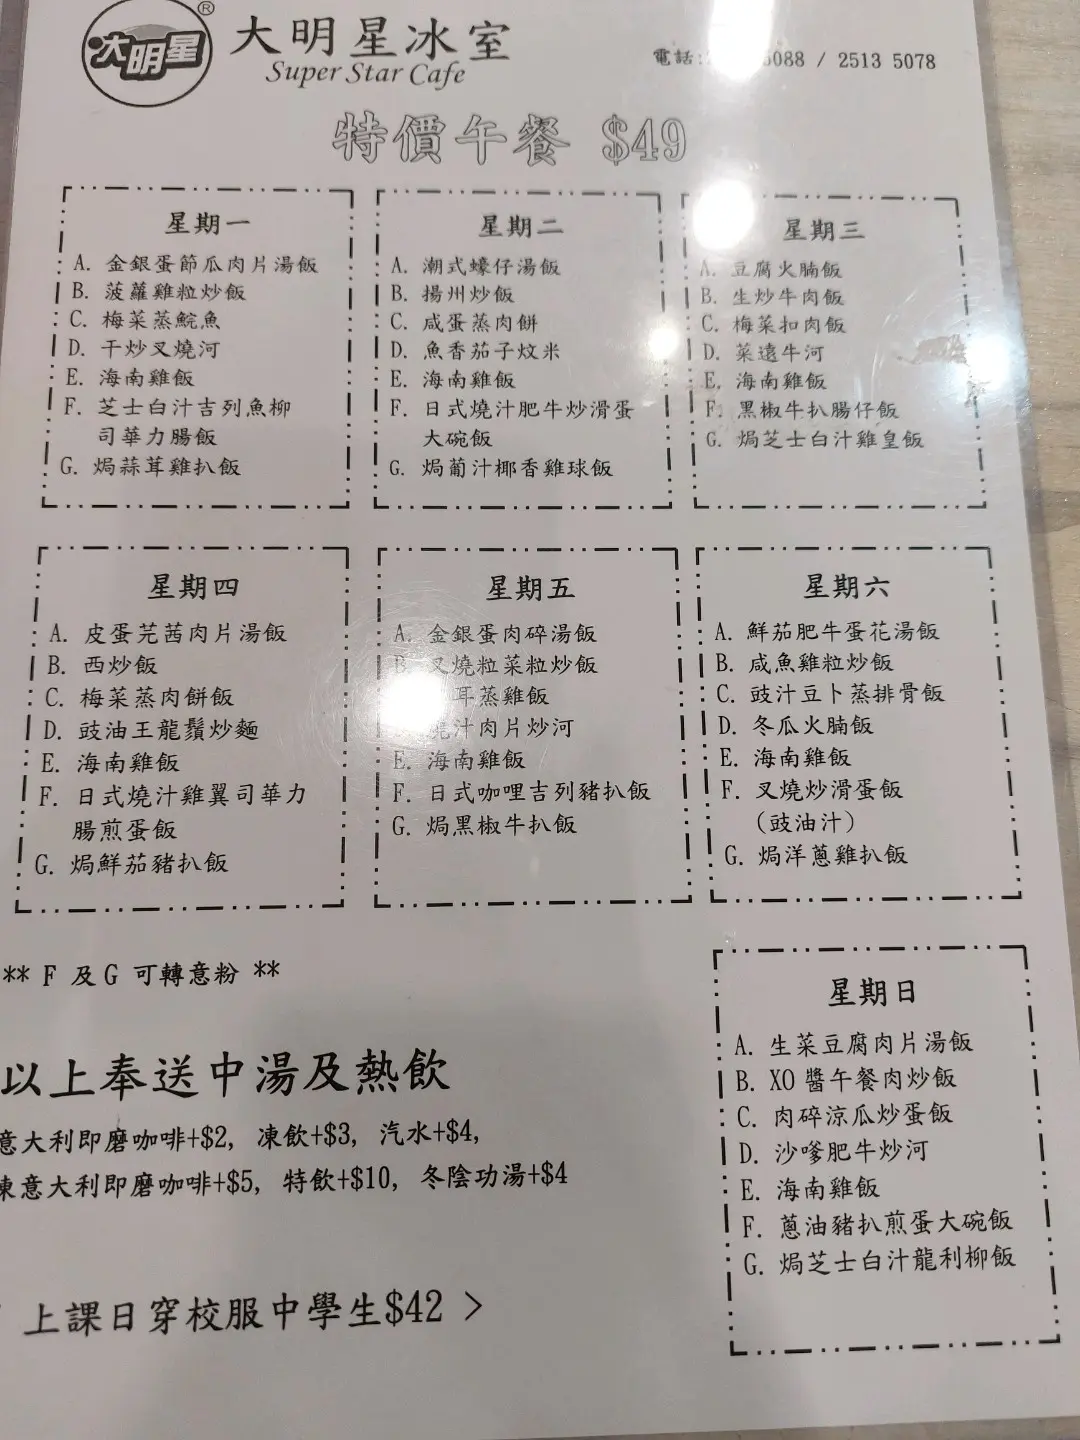 大明星
®
大明星冰室
Super Star Cafe
電話: 5088 / 2513 5078
特價午餐 $49
星期一
A. 金銀蛋節瓜肉片湯飯
B. 菠蘿雞粒炒飯
C. 梅菜蒸鯇魚
D. 干炒叉燒河
E. 海南雞飯
F. 芝士白汁吉列魚柳
司華力腸飯
G. 焗蒜茸雞扒飯
星期二
A. 潮式蠔仔湯飯
B. 揚州炒飯
C. 咸蛋蒸肉餅
D. 魚香茄子炆米
E. 海南雞飯
F. 日式燒汁肥牛炒滑蛋
大碗飯
G. 焗葡汁椰香雞球飯
星期三
A. 豆腐火腩飯
B. 生炒牛肉飯
C. 梅菜扣肉飯
D. 菜遠牛河
E. 海南雞飯
F. 黑椒牛扒腸仔飯
G. 焗芝士白汁雞皇飯
星期四
A. 皮蛋芫茜肉片湯飯
B. 西炒飯
C. 梅菜蒸肉餅飯
D. 豉油王龍鬚炒麵
E. 海南雞飯
F. 日式燒汁雞翼司華力
腸煎蛋飯
G. 焗鮮茄豬扒飯
星期五
A. 金銀蛋肉碎湯飯
B. 叉燒粒菜粒炒飯
耳蒸雞飯
燒汁肉片炒河
E. 海南雞飯
F. 日式咖哩吉列豬扒飯
G. 焗黑椒牛扒飯
星期六
A. 鮮茄肥牛蛋花湯飯
B. 咸魚雞粒炒飯
C. 豉汁豆卜蒸排骨飯
D. 冬瓜火腩飯
E. 海南雞飯
F. 叉燒炒滑蛋飯
(豉油汁)
G. 焗洋蔥雞扒飯
** F 及 G 可轉意粉 **
以上奉送中湯及熱飲
意大利即磨咖啡+$2, 凍飲+$3, 汽水+$4,
凍意大利即磨咖啡+$5, 特飲+$10, 冬陰功湯+$4
上課日穿校服中學生$42 >
星期日
A. 生菜豆腐肉片湯飯
B. XO 醬午餐肉炒飯
C. 肉碎涼瓜炒蛋飯
D. 沙嗲肥牛炒河
E. 海南雞飯
F. 蔥油豬扒煎蛋大碗飯
G. 焗芝士白汁龍利柳飯